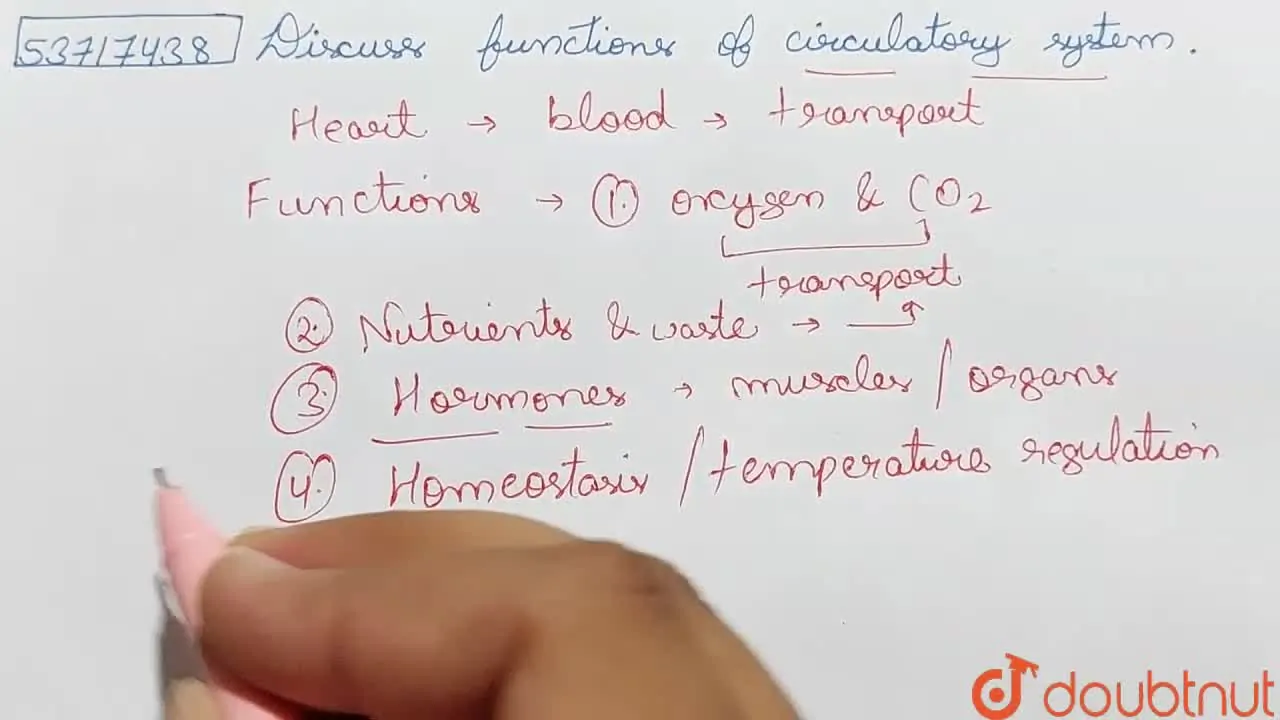 53717438 Discuss functions of circulatory system.
Heart → blood → transport
Functions → 1. oxygen & CO2
transport
2. Nutrients & waste →
3. Hormones → muscles / organs
4. Homeostasis / temperature regulation
doubtnut